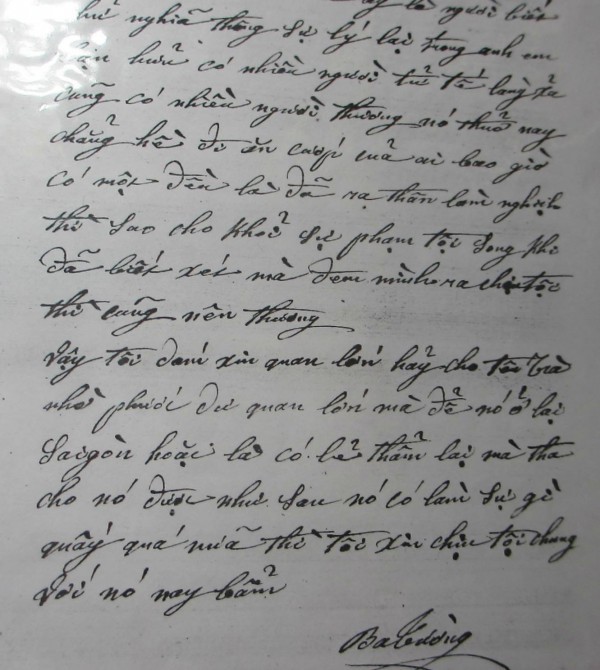 là người biết
nghĩa thông sự lý lại trong anh em
hữu có nhiều người tử tế làng xã
cũng có nhiều người thương nó thuở nay
chẳng hề đi ăn cướp của ai bao giờ
có một đều là đã ra thân làm nghịch
thì sao cho khỏi sự phạm tội song khi
đã biết xét mà đem mình ra chịu tội
thì cũng nên thương
Vậy tôi dám xin quan lớn hãy cho tôi
nhờ phước dư quan lớn mà để nó ở lại
Saigòn hoặc là có lẽ thẩm lại mà tha
cho nó được như sau nó có làm sự gì
quấy quá nữa thì tôi xin chịu tội chung
với nó nay bẩm
Ba Tường